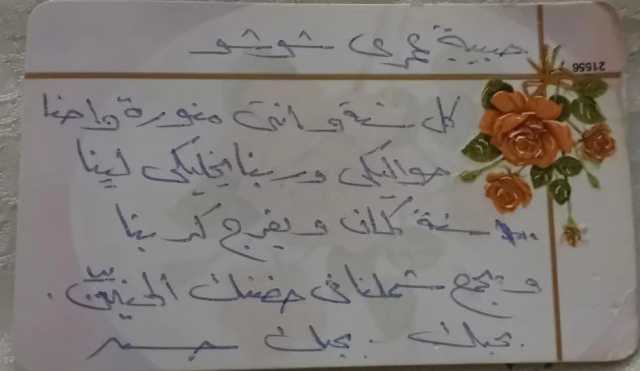 حبيبة عمري شوشو
21556
كل سنة وانتي منورة واحنا
حواليكي وربنا يخليكي لينا
١٠٠ سنة كمان ويفرج كربنا
ويجمع شملنا في حضنك الحنين.
بحبك. بحبك